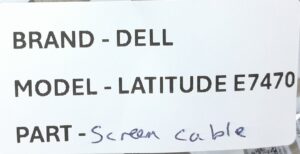 BRAND - DELL
MODEL - LATITUDE E7470
PART - Screen cable